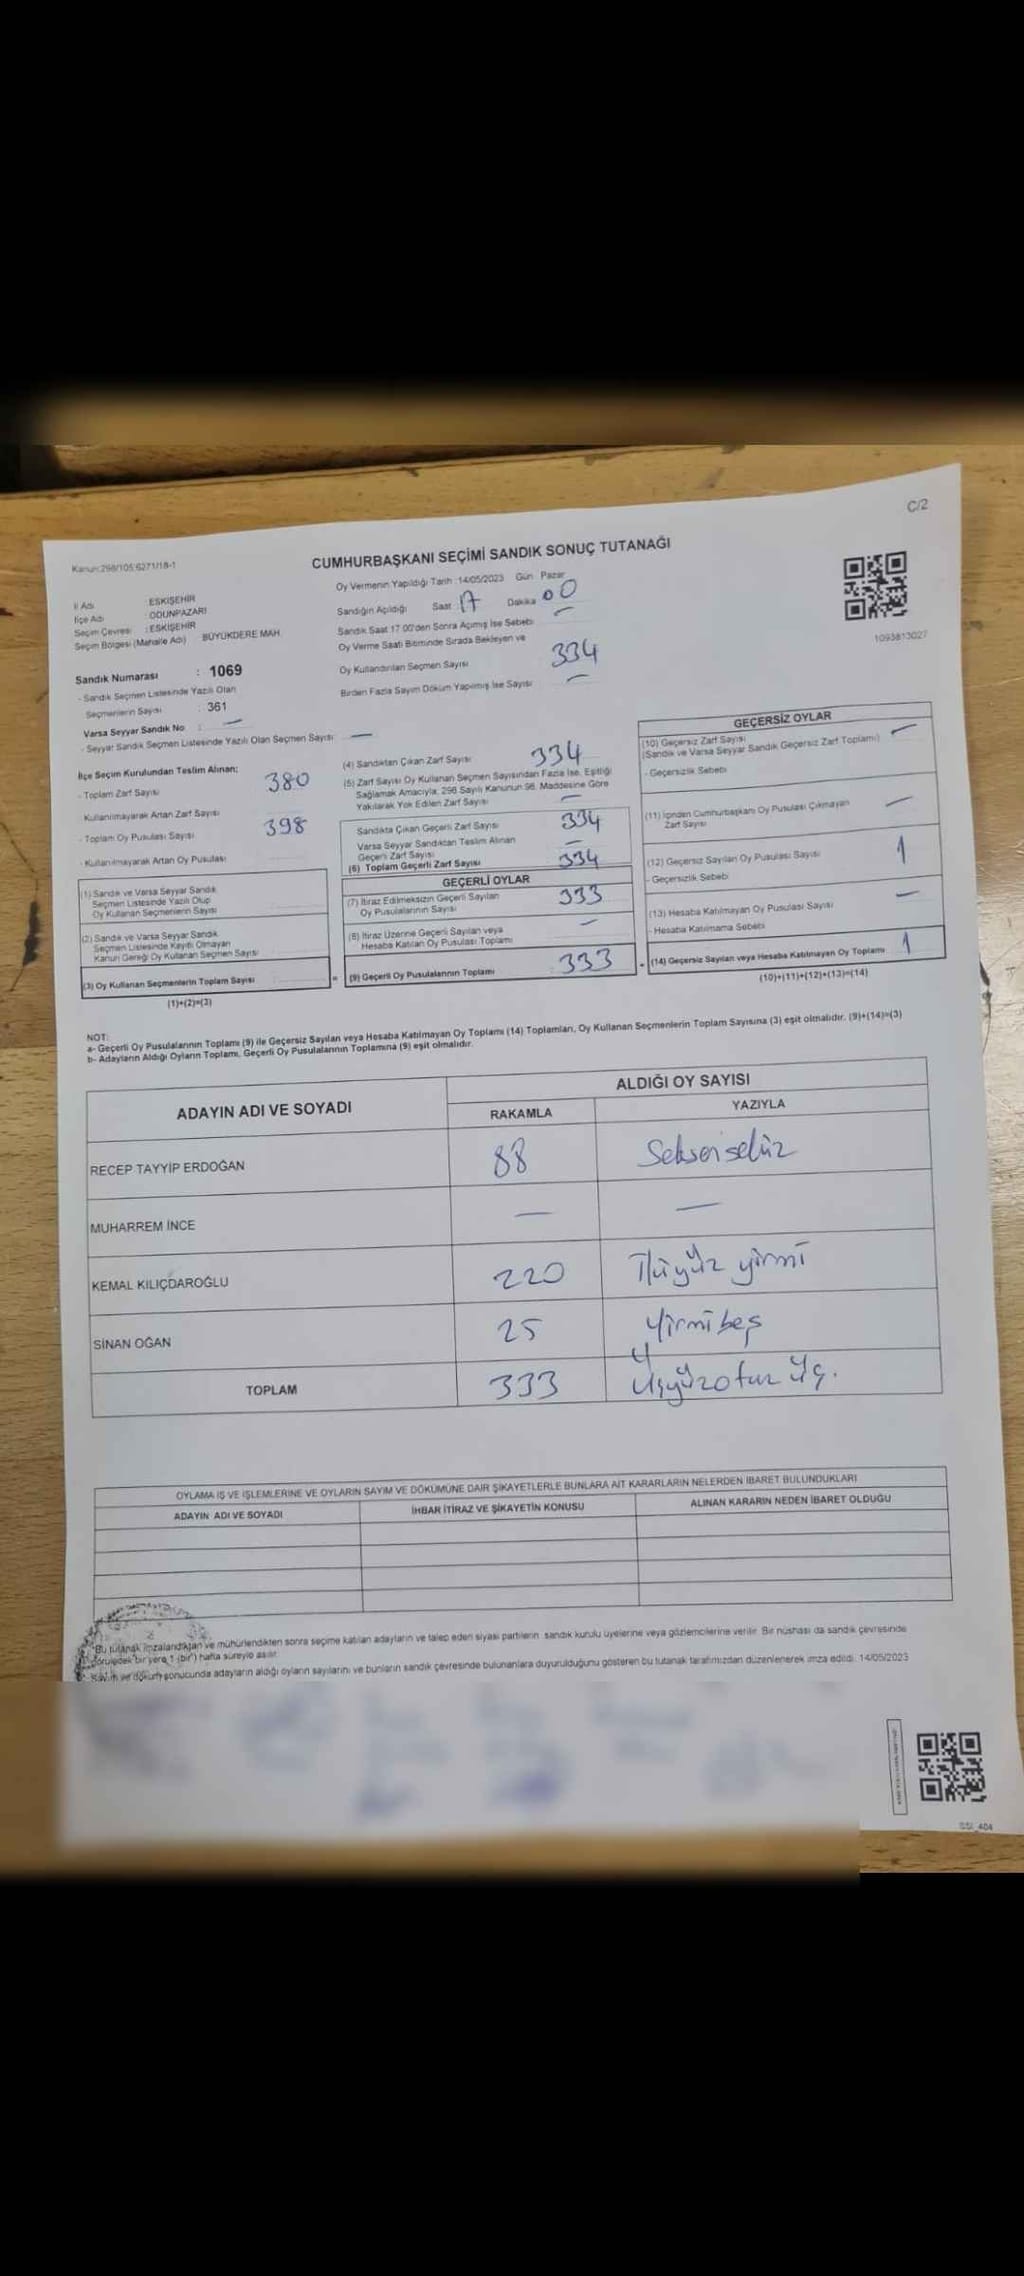 C/2
Kanun:298/105;6271/18-1
CUMHURBAŞKANI SEÇİMİ SANDIK SONUÇ TUTANAĞI
İl Adı : ESKİŞEHİR
İlçe Adı : ODUNPAZARI
Seçim Çevresi : ESKİŞEHİR
Seçim Bölgesi (Mahalle Adı) : BÜYÜKDERE MAH.
Oy Vermenin Yapıldığı Tarih :14/05/2023 Gün Pazar
Sandığın Açıldığı Saat 17 Dakika 00
Sandık Saat 17:00'den Sonra Açılmış İse Sebebi —
Oy Verme Saati Bitiminde Sırada Bekleyen ve
Oy Kullandırılan Seçmen Sayısı 334
Birden Fazla Sayım Döküm Yapılmış İse Sayısı —
1093813027
Sandık Numarası : 1069
- Sandık Seçmen Listesinde Yazılı Olan
Seçmenlerin Sayısı : 361
Varsa Seyyar Sandık No : —
- Seyyar Sandık Seçmen Listesinde Yazılı Olan Seçmen Sayısı: —
İlçe Seçim Kurulundan Teslim Alınan:
- Toplam Zarf Sayısı 380
- Kullanılmayarak Artan Zarf Sayısı
- Toplam Oy Pusulası Sayısı 398
- Kullanılmayarak Artan Oy Pusulası
(1) Sandık ve Varsa Seyyar Sandık
Seçmen Listesinde Yazılı Olup
Oy Kullanan Seçmenlerin Sayısı
(2) Sandık ve Varsa Seyyar Sandık
Seçmen Listesinde Kayıtlı Olmayan
Kanun Gereği Oy Kullanan Seçmen Sayısı
(3) Oy Kullanan Seçmenlerin Toplam Sayısı
(1)+(2)=(3)
(4) Sandıktan Çıkan Zarf Sayısı 334
(5) Zarf Sayısı Oy Kullanan Seçmen Sayısından Fazla İse, Eşitliği
Sağlamak Amacıyla; 298 Sayılı Kanunun 98. Maddesine Göre
Yakılarak Yok Edilen Zarf Sayısı —
Sandıkta Çıkan Geçerli Zarf Sayısı 334
Varsa Seyyar Sandıktan Teslim Alınan
Geçerli Zarf Sayısı —
(6) Toplam Geçerli Zarf Sayısı 334
GEÇERLİ OYLAR
(7) İtiraz Edilmeksizin Geçerli Sayılan
Oy Pusulalarının Sayısı 333
(8) İtiraz Üzerine Geçerli Sayılan veya
Hesaba Katılan Oy Pusulası Toplamı —
= (9) Geçerli Oy Pusulalarının Toplamı 333
GEÇERSİZ OYLAR
(10) Geçersiz Zarf Sayısı —
(Sandık ve Varsa Seyyar Sandık Geçersiz Zarf Toplamı)
- Geçersizlik Sebebi
(11) İçinden Cumhurbaşkanı Oy Pusulası Çıkmayan
Zarf Sayısı —
(12) Geçersiz Sayılan Oy Pusulası Sayısı 1
- Geçersizlik Sebebi
(13) Hesaba Katılmayan Oy Pusulası Sayısı —
- Hesaba Katılmama Sebebi
+ (14) Geçersiz Sayılan veya Hesaba Katılmayan Oy Toplamı 1
(10)+(11)+(12)+(13)=(14)
NOT:
a- Geçerli Oy Pusulalarının Toplamı (9) ile Geçersiz Sayılan veya Hesaba Katılmayan Oy Toplamı (14) Toplamları, Oy Kullanan Seçmenlerin Toplam Sayısına (3) eşit olmalıdır. (9)+(14)=(3)
b- Adayların Aldığı Oyların Toplamı, Geçerli Oy Pusulalarının Toplamına (9) eşit olmalıdır.
ADAYIN ADI VE SOYADI ALDIĞI OY SAYISI
RAKAMLA YAZIYLA
RECEP TAYYİP ERDOĞAN 88 Seksensekiz
MUHARREM İNCE — —
KEMAL KILIÇDAROĞLU 220 İkiyüz yirmi
SİNAN OĞAN 25 Yirmibeş
TOPLAM 333 Üçyüzotuz üç.
OYLAMA İŞ VE İŞLEMLERİNE VE OYLARIN SAYIM VE DÖKÜMÜNE DAİR ŞİKAYETLERLE BUNLARA AİT KARARLARIN NELERDEN İBARET BULUNDUKLARI
ADAYIN ADI VE SOYADI İHBAR İTİRAZ VE ŞİKAYETİN KONUSU ALINAN KARARIN NEDEN İBARET OLDUĞU
Bu tutanak imzalandıktan ve mühürlendikten sonra seçime katılan adayların ve talep eden siyasi partilerin sandık kurulu üyelerine veya gözlemcilerine verilir. Bir nüshası da sandık çevresinde
görülecek bir yere 1 (bir) hafta süreyle asılır.
Sayım ve döküm sonucunda adayların aldığı oyların sayılarını ve bunların sandık çevresinde bulunanlara duyurulduğunu gösteren bu tutanak tarafımızdan düzenlenerek imza edildi. 14/05/2023
SSI_404